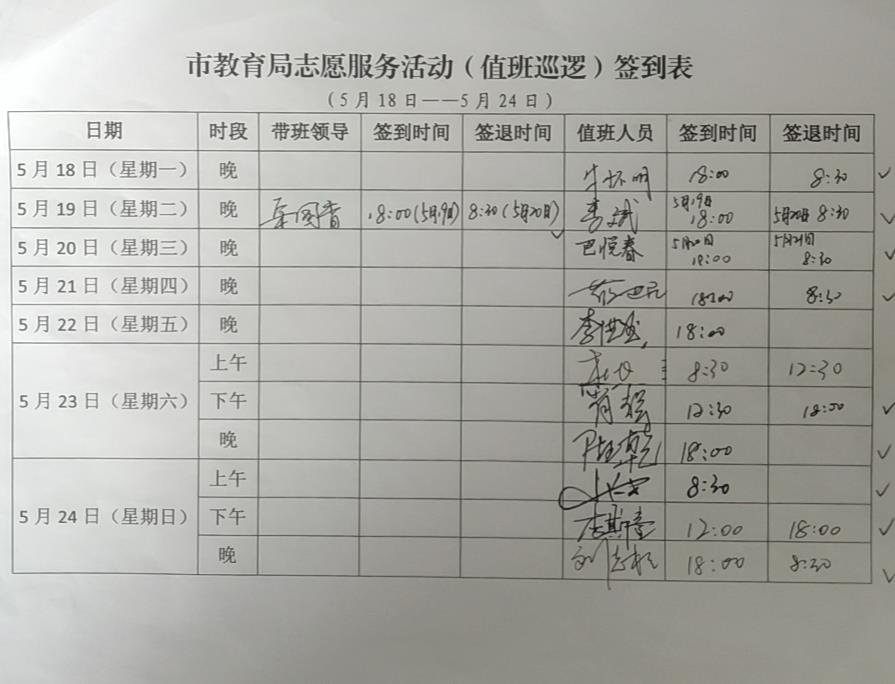 市教育局志愿服务活动（值班巡逻）签到表
（5月18日——5月24日）
日期 时段 带班领导 签到时间 签退时间 值班人员 签到时间 签退时间
5月18日（星期一） 晚 18:00 8:30
5月19日（星期二） 晚 18:00(5月19日) 8:30(5月20日) 李斌 5月19日 18:00 5月20日 8:30
5月20日（星期三） 晚 巴悦春 5月20日 18:00 5月21日 8:30
5月21日（星期四） 晚 18:00 8:30
5月22日（星期五） 晚 18:00
5月23日（星期六） 上午 8:30 12:30
下午 12:30 18:00
晚 18:00
5月24日（星期日） 上午 8:30
下午 12:00 18:00
晚 18:00 8:30